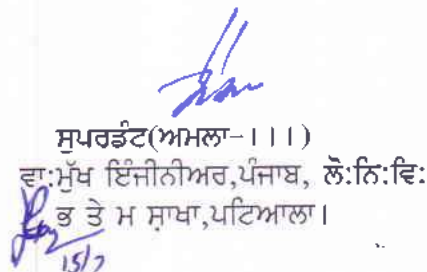 ਸੁਪਰਡੰਟ(ਅਮਲਾ-।।।)
ਵਾ:ਮੁੱਖ ਇੰਜੀਨੀਅਰ,ਪੰਜਾਬ, ਲੋ:ਨਿ:ਵਿ:
ਭ ਤੇ ਮ ਸ਼ਾਖਾ,ਪਟਿਆਲਾ।
15/7